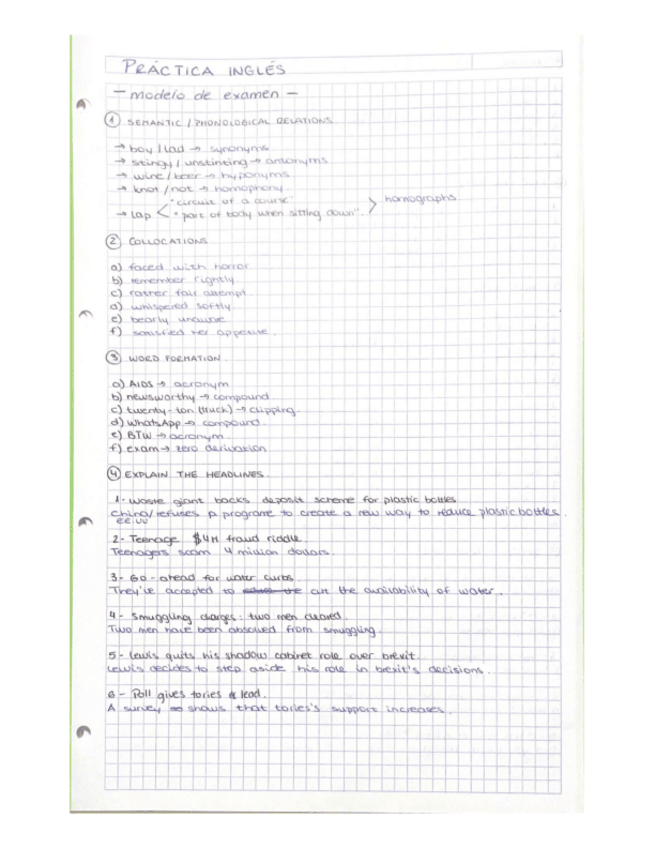 PRÁCTICA INGLÉS
- modelo de examen -
1 SEMANTIC / PHONOLOGICAL RELATIONS
→ boy / lad → synonyms
→ stingy / unstinting → antonyms
→ wine / beer → hyponyms
→ knot / not → homophony
"circuit of a course"
→ Lap < > homographs
"part of body when sitting down".
2 COLLOCATIONS
a) faced with horror
b) remember rightly
c) rather fair attempt
d) whispered softly
e) bearly unaware
f) satisfied her appetite.
3 WORD FORMATION.
a) AIDS → acronym
b) newsworthy → compound
c) twenty-ton (truck) → clipping.
d) WhatsApp → compound
e) BTW → acronym
f) exam → zero derivation
4 EXPLAIN THE HEADLINES.
1- Waste giant backs deposit scheme for plastic bottles
China/ refuses a programe to create a new way to reduce plastic bottles.
EE.UU
2- Teenage $4M fraud riddle.
Teenagers scam 4 million dollars.
3- Go-ahead for water curbs.
They've accepted to cut the availability of water.
4- Smuggling charges: two men cleared.
Two men have been absolved from smuggling.
5- Lewis quits his shadow cabinet role over brexit.
Lewis decides to step aside his role in brexit's decisions.
6- Poll gives tories a lead.
A survey shows that tories's support increases.